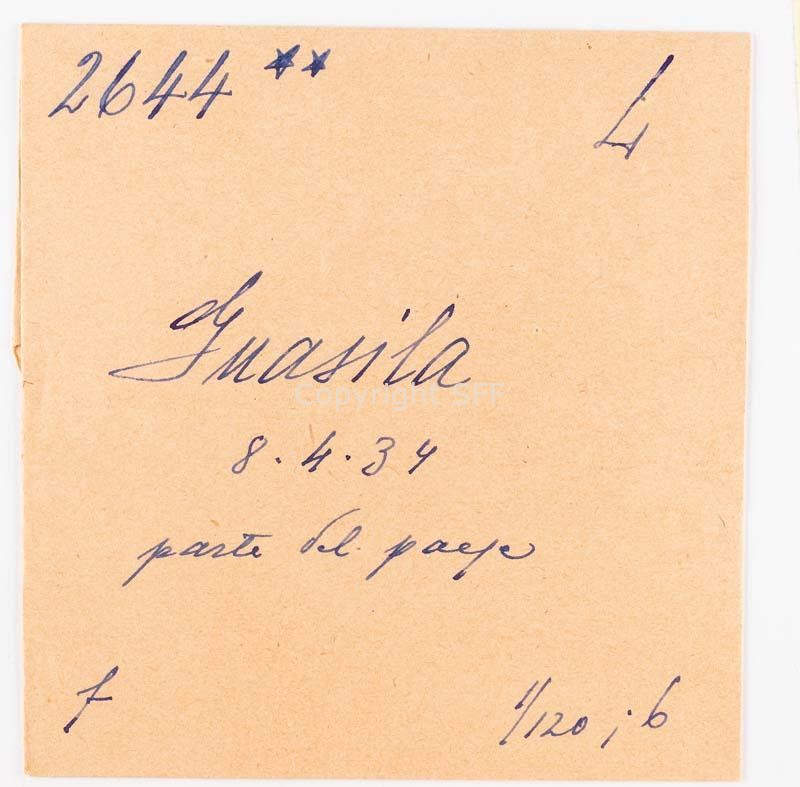 2644 ** L
Guasila
Copyright SFF
8.4.34
parte del paese
f
1/120 ; 6